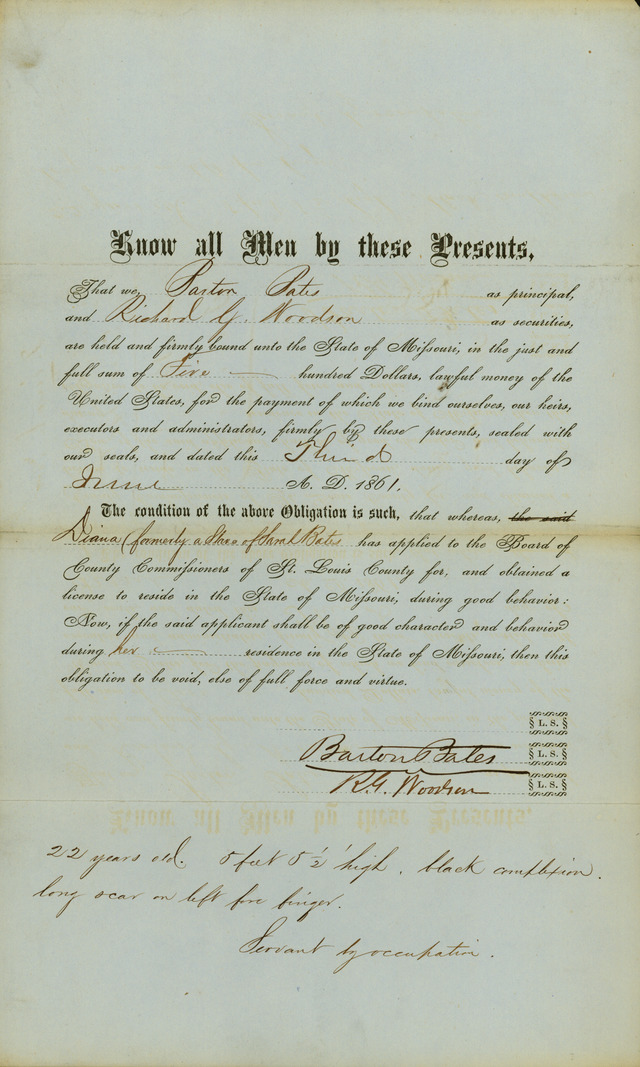 Know all Men by these Presents,
That we, Barton Bates as principal,
and Richard G. Woodson as securities,
are held and firmly bound unto the State of Missouri, in the just and
full sum of Five hundred Dollars, lawful money of the
United States, for the payment of which we bind ourselves, our heirs,
executors and administrators, firmly by these presents, sealed with
our seals, and dated this Third day of
June A. D. 1861.
The condition of the above Obligation is such, that whereas, the said
Diana (formerly a Slave of Sarah Bates has applied to the Board of
County Commissioners of St. Louis County for, and obtained a
license to reside in the State of Missouri, during good behavior:
Now, if the said applicant shall be of good character and behavior
during her residence in the State of Missouri, then this
obligation to be void, else of full force and virtue.
L. S.
Barton Bates L. S.
R. G. Woodson L. S.
22 years old. 5 feet 5 1/2 high. black complexion.
long scar on left fore finger.
Servant by occupation.